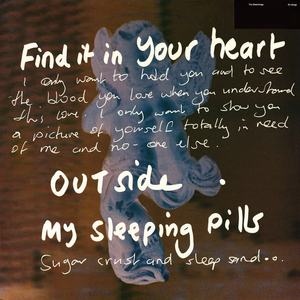 Find it in your heart
I only want to hold you and to see
the blood you love when you understand
this love. I only want to show you
a picture of yourself totally in need
of me and no-one else.
OUTside.
My sleeping pills
Sugar crust and sleep sand...